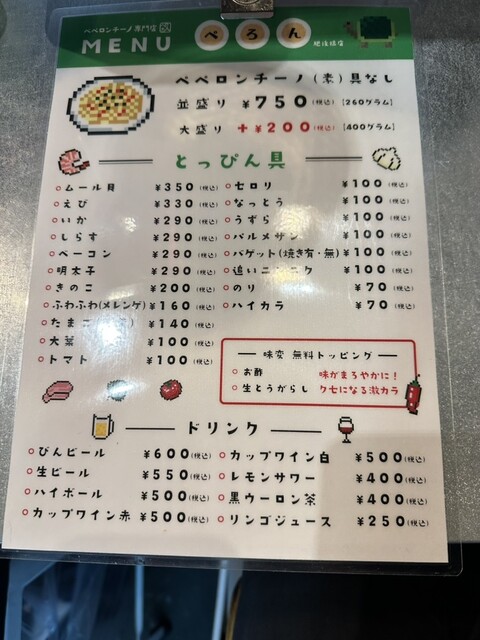 ペペロンチーノ専門店
MENU
ぺろん
ペペロンチーノ(素)具なし
並盛り ¥750(税込) [260グラム]
大盛り +¥200(税込) [400グラム]
とっぴん具
ムール貝 ¥350(税込)
えび ¥330(税込)
いか ¥290(税込)
しらす ¥290(税込)
ベーコン ¥290(税込)
明太子 ¥290(税込)
きのこ ¥200(税込)
ふわふわ(メレンゲ) ¥160(税込)
たまご ¥140(税込)
大葉 ¥100(税込)
トマト ¥100(税込)
セロリ ¥100(税込)
なっとう ¥100(税込)
うずら ¥100(税込)
パルメザン ¥100(税込)
バゲット(焼き有・無) ¥100(税込)
追いニンニク ¥100(税込)
のり ¥70(税込)
ハイカラ ¥70(税込)
味変 無料トッピング
お酢 味がまろやかに!
生とうがらし クセになる激カラ
ドリンク
びんビール ¥600(税込)
生ビール ¥550(税込)
ハイボール ¥500(税込)
カップワイン赤 ¥500(税込)
カップワイン白 ¥500(税込)
レモンサワー ¥400(税込)
黒ウーロン茶 ¥400(税込)
リンゴジュース ¥250(税込)